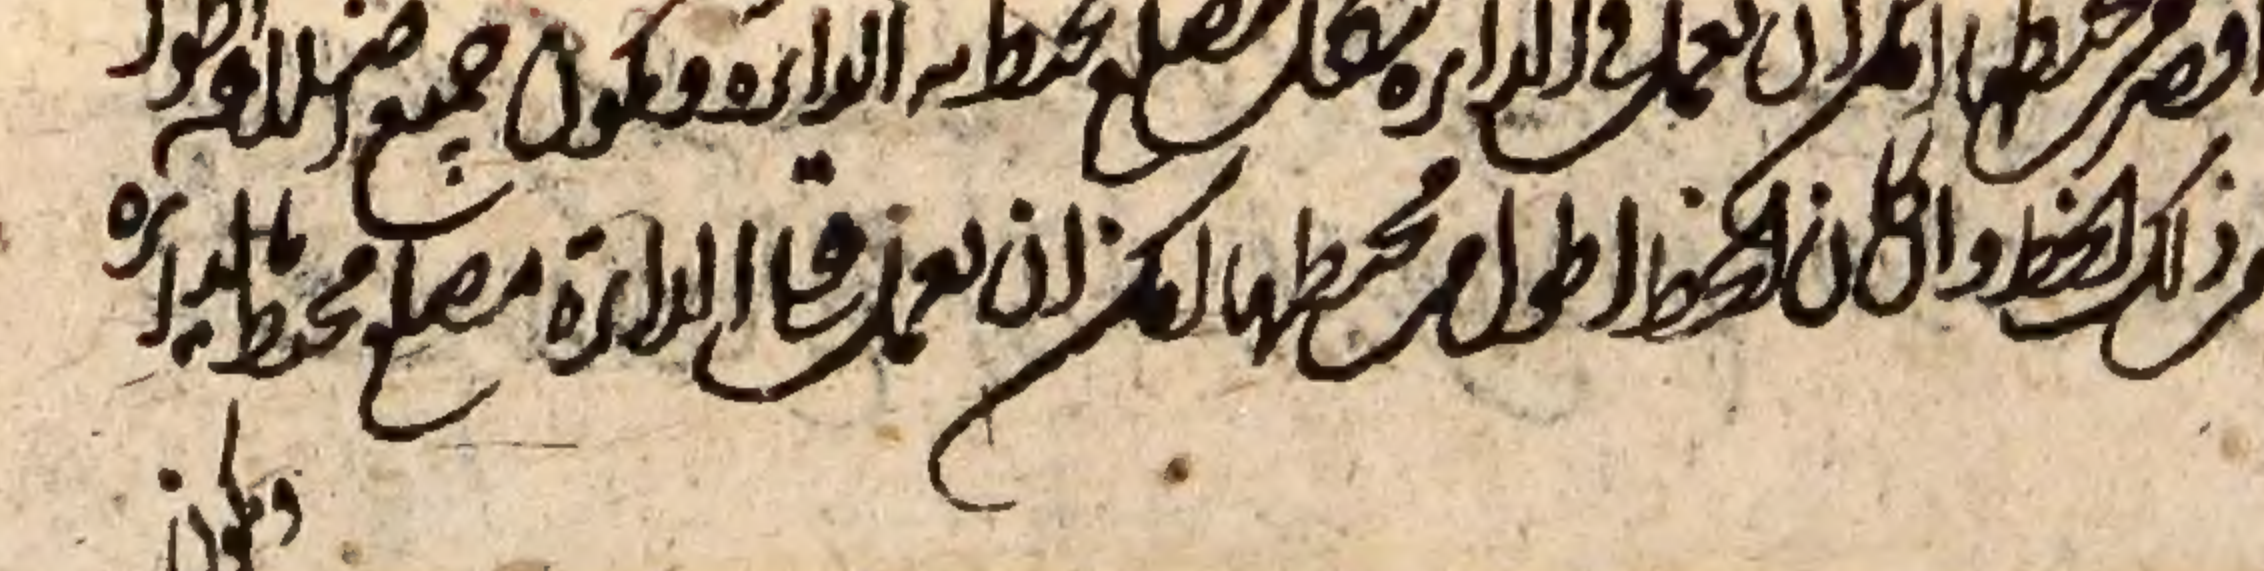 اقصر من محيطها امكن ان نعمل في الدايره شكل مضلع يحيط به الدايرة ويكون جميع اضلاعه اطول
من ذلك الخط وان كان الخط اطول من محيطها امكن ان نعمل على الدايرة مضلع محيط بالدايره
ويكون